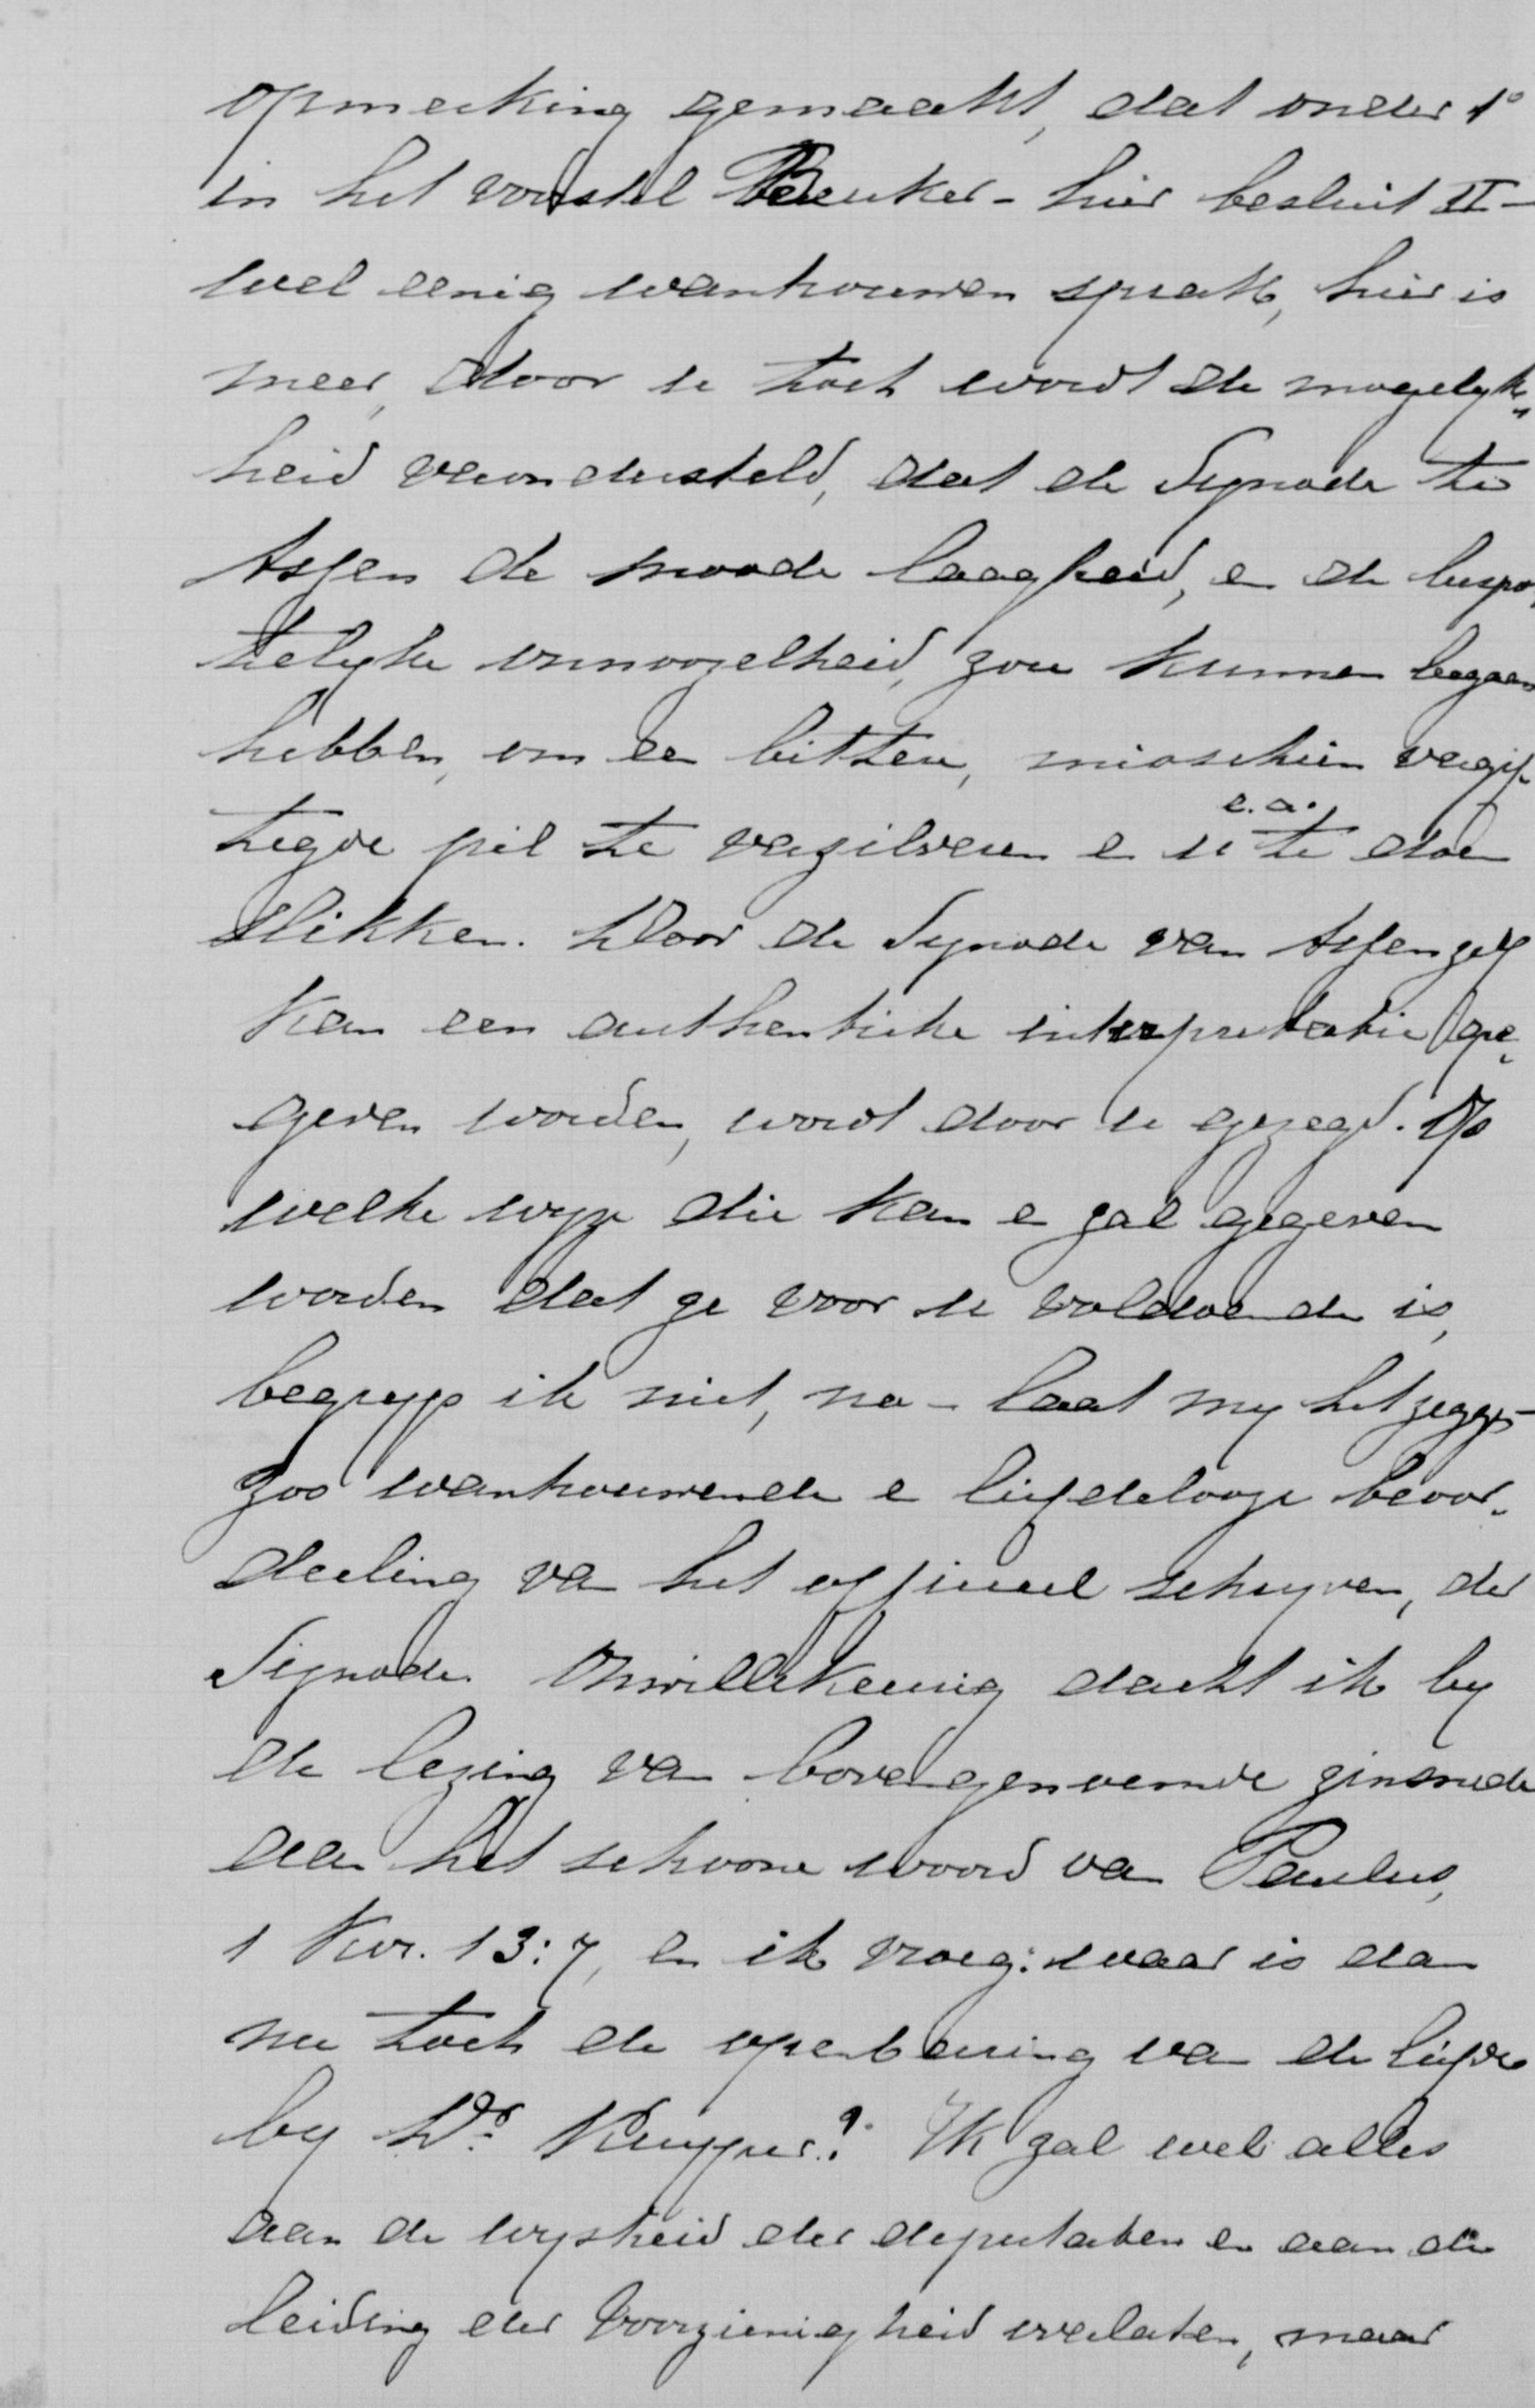 opmerking gemaakt, dat onder 1°
in het voorstel Beuker - hier besluit II -
wel eenig wantrouwen sprak, hier is
meer, door u toch wordt de mogelyk„
heid verondersteld, dat de Synode te
Assen de snoode laagheid, en de bespot„
telyke onnoozelheid, zou kunnen begaan
hebben, om een bittere, misschien vergif„
tigde pil te verzilveren en u e.a. te doen
slikken. Door de Synode van Assen zelf
kan een authentieke interpretatie ge„
geven worden, wordt door u gezegd. Op
welke wyze die kan en zal gegeven
worden dat ze voor u voldoende is,
begryp ik niet, na - laat my het zeggen -
zoo wantrouwende en liefdelooze beoor„
deeling van het officieel schryven, der
Synode. Onwillekeurig dacht ik by
de lezing van bovengenoemde zinsnede
aan het schoone woord van Paulus,
1 Kor. 13:7, en ik vroeg: waar is dan
nu toch de openbaring van de liefde
by Dr. Kuyper? Ik zal wel alles
aan de wysheid der deputaten en aan de
leiding der Voorzienigheid overlaten, maar